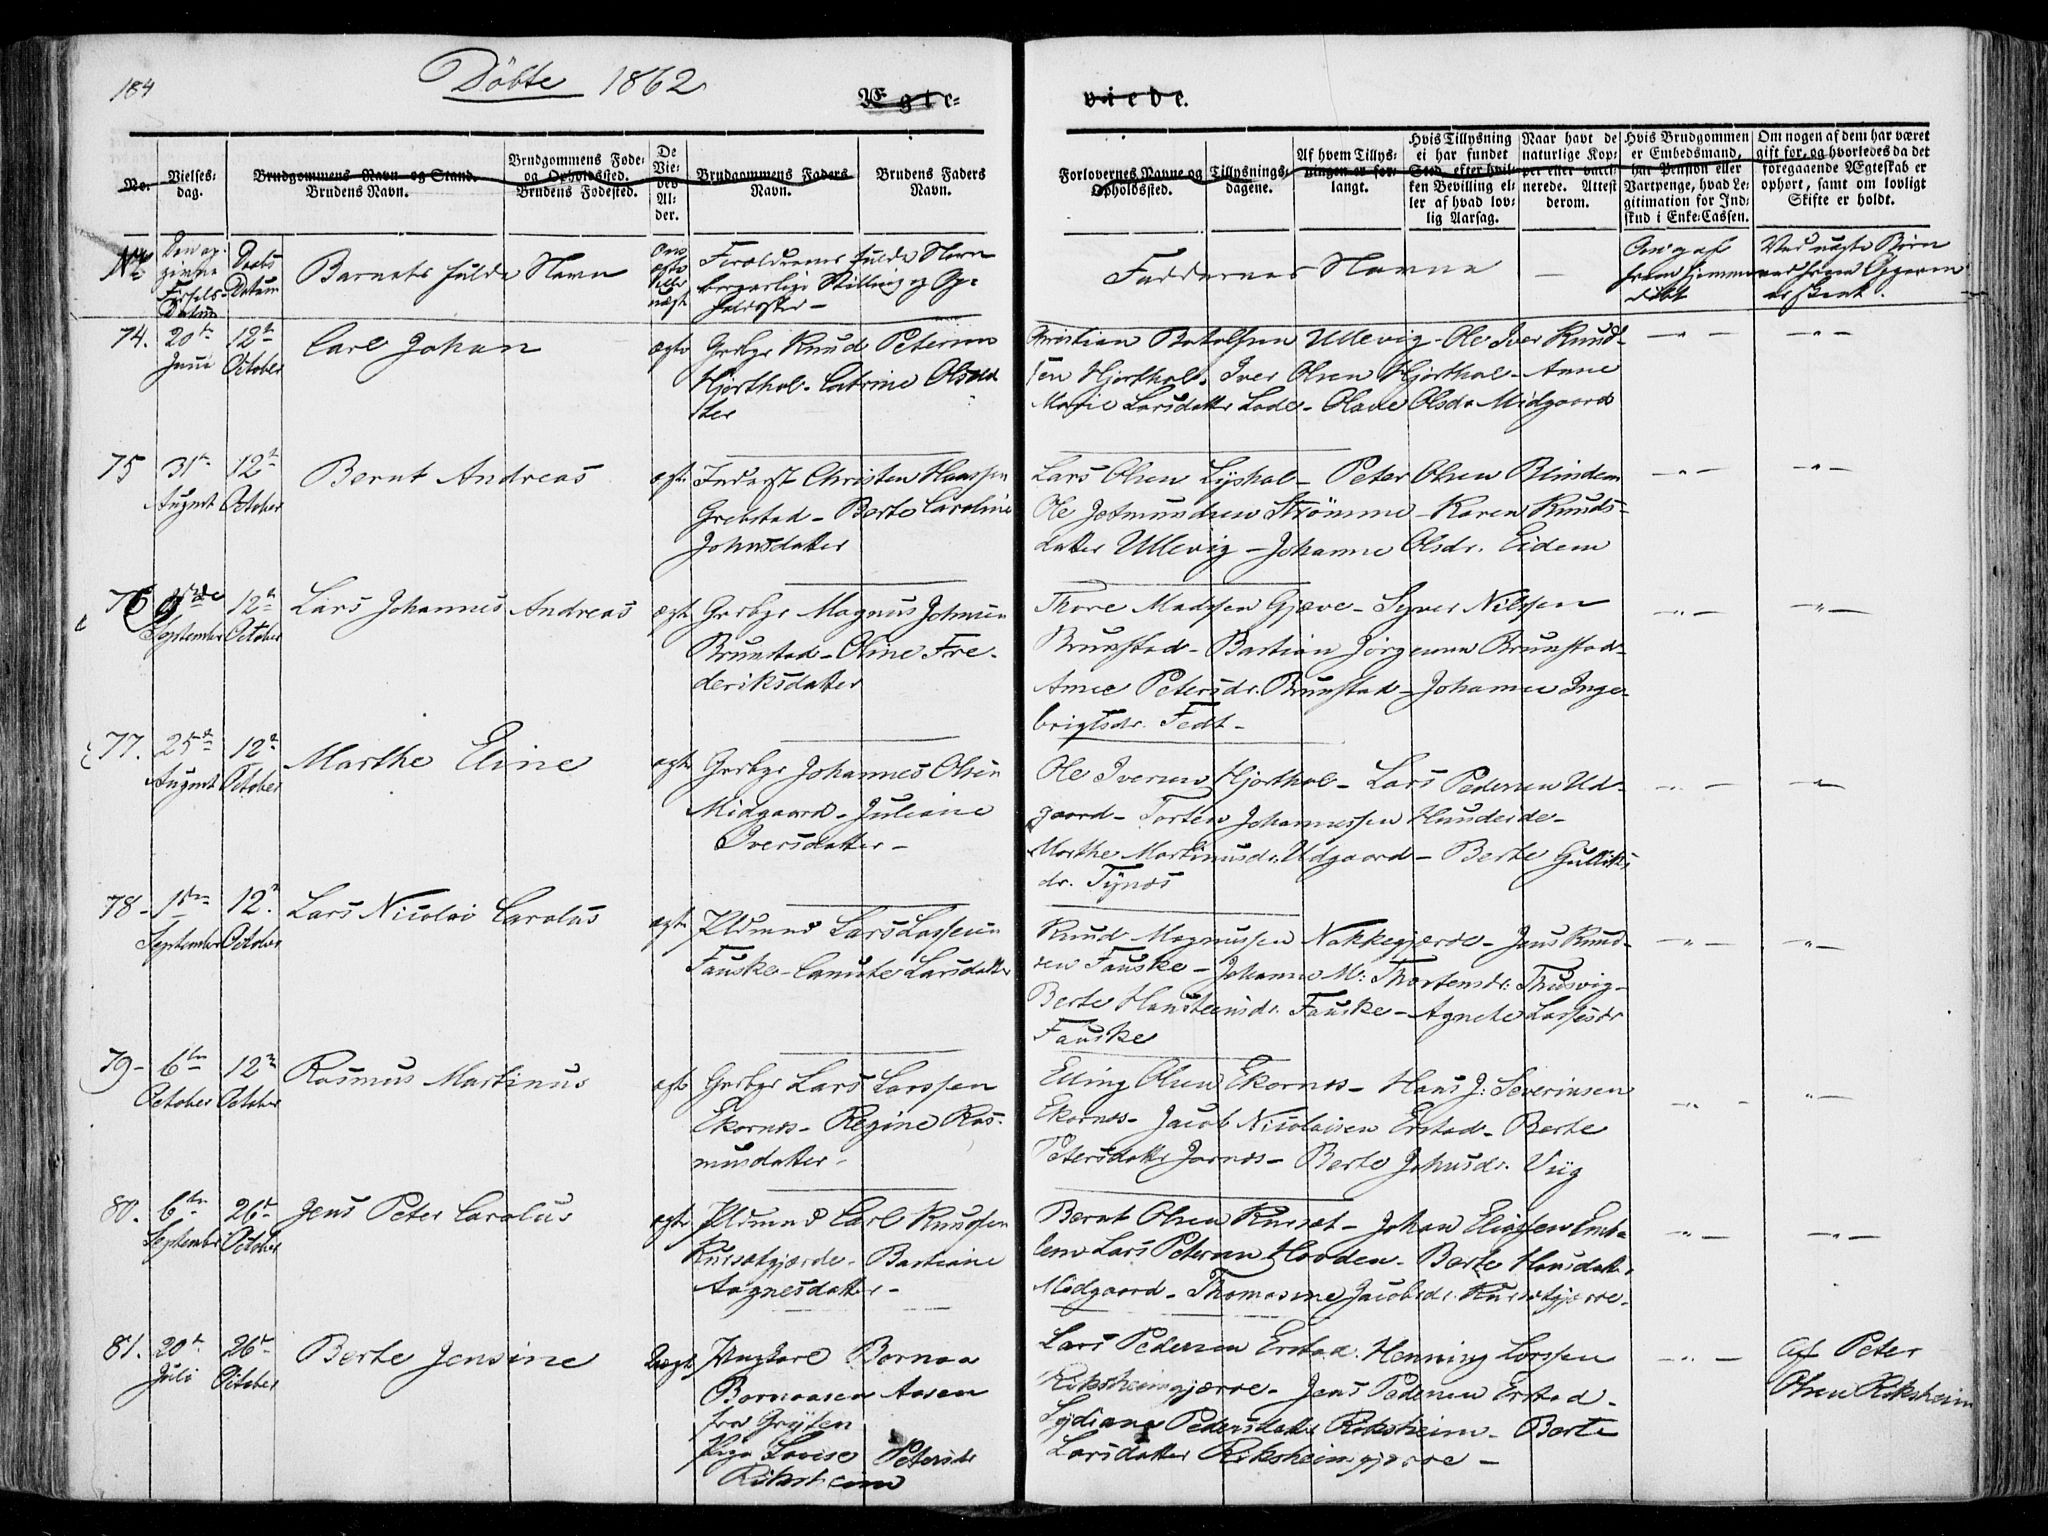 184
Döbte 1862
Ægte-
viede.
No.
Vielses-dag.
Brudgommens Navn og Stand.
Brudens Navn.
Brudgommens Føde- og Opholdssted.
Brudens Fødested.
De Viedes Alder.
Brudgommens Faders Navn.
Brudens Faders Navn.
Forlovernes Navne og Opholdssted.
Tillysnings-dagene.
Af hvem Tillysningen er forlangt.
Hvis Tillysning ei har fundet Sted, efter hvilken Bevilling eller af hvad lovlig Aarsag.
Naar havt de naturlige Kopper eller vaccinerede. Attest derom.
Hvis Brudgommen er Embedsmand, har Pension eller Vartpenge, hvad Legitimation for Indskud i Enke-Cassen.
Om nogen af dem har været gift før, og hvorledes da det foregaaende Ægteskab er ophørt, samt om lovligt Skifte er holdt.
No
Den opgivne Fødsels Datum
Daabs Datum
Barnets fulde Navn
Om ægte eller uægte
Forældrenes fulde Navn borgerlige Stilling og Opholdssted
Faddernes Navne
Ved uægte Børn
74. 20de Juni 12te October Carl Johan ægte
Grbgr Knud Petersen
Hjorthol. Catrine Olsdat
ter
Christian Botolfsen Ullevig - Ole Iver Knud-
sen Hjorthol. Iver Olsen Hjorthol - Anne
Marie Larsdatter Lade - Olave Olsdr Midgaard
75 31te August 12te October Bernt Andreas ægte
Inderst Christen Hanssen
Grebstad - Berte Caroline
Johnsdatter
Lars Olsen Lyshol - Peter Olsen Blindem
Ole Jetmundsen Strömme - Karen Knuds-
datter Ullevig - Johanne Olsdr. Eidem
76 September 12te October Lars Johannes Andreas ægte
Grbgr Magnus Johnsen
Brunstad - Oline Fre-
deriksdatter
Thore Madssen Gjæve - Syver Nilssen
Brunstad - Bastian Jörgensen Brunstad
Anne Petersdr. Brunstad - Johanne Inge-
brigtsdr. Fedt -
77. 25de August 12te October Marthe Eline ægte
Grbgr Johannes Olsen
Midgaard - Juliane
Iversdatter -
Ole Iversen Hjorthol - Lars Pedersen Ud-
gaard - Torsten Johannessen Hunderde -
Marthe Martinusdr. Udgaard - Berte Gulliks
dr. Tynes
78 - 1ste September 12. October Lars Nicolai Carolus ægte
Pldmnd Lars Lassen
Fauske - Canute Larsdatter
Knud Magnussen Nakkegjerde - Jens Knud-
sen Fauske - Johanne M: Thorstensdr. Thusvig -
Berte Hansteensdr. Fauske - Agnete Lassesdr
Fauske
79 - 6te October 12te October Rasmus Martinus ægte
Grbgr Lars Larssen
Ekornes - Regine Ras-
musdatter -
Elling Olsen Ekornes - Hans J: Severinsen
Ekornes - Jacob Nicolaisen Erstad - Berte
Petersdatter Jarnes - Berte Johnsdr. Viig
80. 6te September 26de October Jens Peter Carolus ægte
Pldmnd Carl Knudsen
Kursetgjærde - Bastiane
Aagnesdatter -
Bernt Olsen Kurset - Johan Eliassen Emb-
lem Lars Petersen Hovden - Berte Hansdatter
Midgaard - Thomasine Jacobsdr. Kursetgjerde -
81. 20de Juli 26de October Berte Jensine Uægte
Ungkarl Bornaa
Bornaasen Aasen
fra Gryten
Pige Lovise Petersdr
Riksheim
Lars Pedersen Erstad. Henning Larssen
Riksheimgjærde - Jens Pedersen Erstad -
Lydiane Pedersdatter Riksheim - Berte
Larsdatter Riksheimgjærde -
Af Peter
Olsen Riksheim